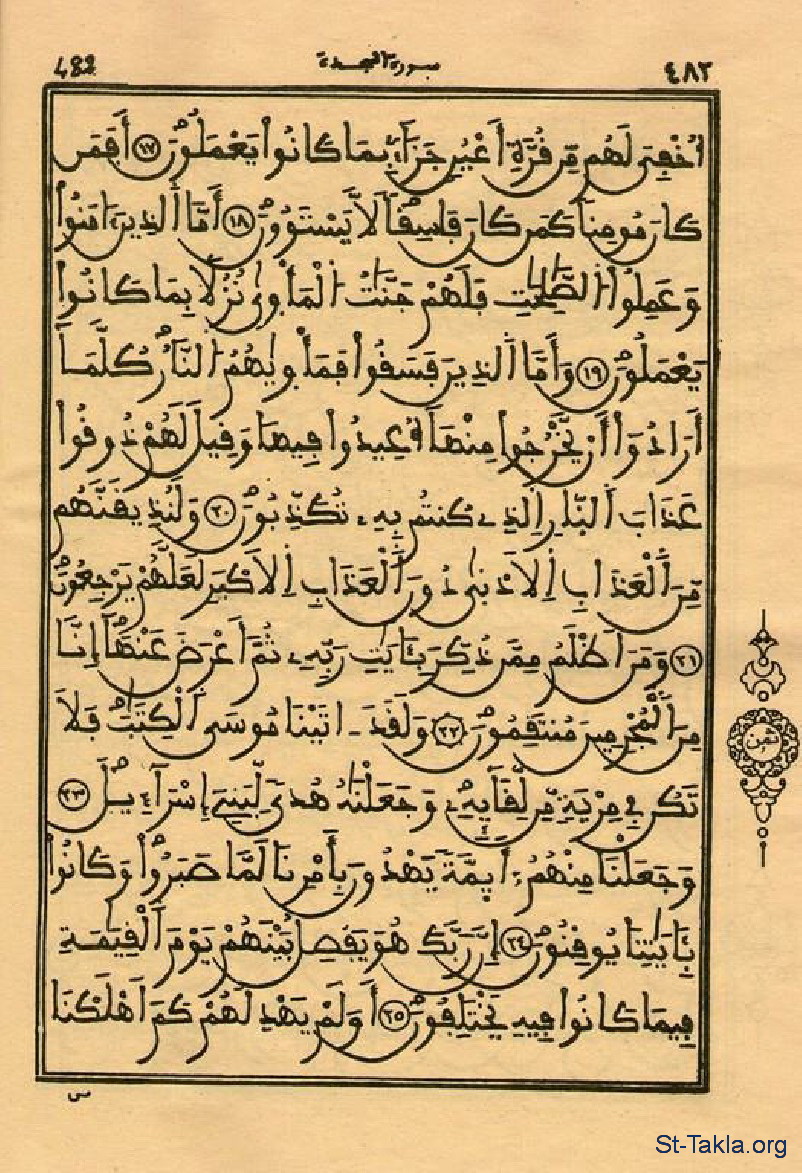 482 سورة السجدة ٤٨٢
أُخْفِيَ لَهُم مِّن قُرَّةِ أَعْيُنٍ جَزَآءً بِمَا كَانُواْ يَعْمَلُونَ ١٧ أَفَمَن
كَانَ مُومِناً كَمَن كَانَ فَاسِقاً لَّا يَسْتَوُۥنَ ١٨ أَمَّا اَ۬لذِينَ ءَامَنُواْ
وَعَمِلُواْ اُ۬لصَّٰلِحَٰتِ فَلَهُمْ جَنَّٰتُ اُ۬لْمَأْو۪ىٰ نُزُلاً بِمَا كَانُواْ
يَعْمَلُونَ ١٩ وَأَمَّا اَ۬لذِينَ فَسَقُواْ فَمَأْو۪ىٰهُمُ اُ۬لنَّارُ كُلَّمَا
أَرَادُوٓاْ أَنْ يَّخْرُجُواْ مِنْهَآ أُعِيدُواْ فِيهَا وَقِيلَ لَهُمْ ذُوقُواْ
عَذَابَ اَ۬لنّ۪ارِ اِ۬لذِے كُنتُم بِهِۦ تُكَذِّبُونَ ٢٠ وَلَنُذِيقَنَّهُم
مِّنَ اَ۬لْعَذَابِ اِ۬لَادْن۪ىٰ دُونَ اَ۬لْعَذَابِ اِ۬لَاكْبَرِ لَعَلَّهُمْ يَرْجِعُونَ
٢١ وَمَنَ اَظْلَمُ مِمَّن ذُكِّرَ بِـَٔايَٰتِ رَبِّهِۦ ثُمَّ أَعْرَضَ عَنْهَآ إِنَّا
مِنَ اَ۬لْمُجْرِمِينَ مُنتَقِمُونَ ٢٢ وَلَقَدَ اٰتَيْنَا مُوسَي اَ۬لْكِتَٰبَ فَلَا
تَكُن فِے مِرْيَةٍ مِّن لِّقَآئِهِۦ وَجَعَلْنَٰهُ هُدىً لِّبَنِےٓ إِسْرَآءِيلَ ٢٣
وَجَعَلْنَا مِنْهُمُۥٓ أَئِمَّةً يَهْدُونَ بِأَمْرِنَا لَمَّا صَبَرُواْ وَكَانُواْ
بِـَٔايَٰتِنَا يُوقِنُونَ ٢٤ إِنَّ رَبَّكَ هُوَ يَفْصِلُ بَيْنَهُمْ يَوْمَ اَ۬لْقِيَٰمَةِ
فِيمَا كَانُواْ فِيهِ يَخْتَلِفُونَ ٢٥ أَوَلَمْ يَهْدِ لَهُمْ كَمَ اَهْلَكْنَا
ثمن
St-Takla.org